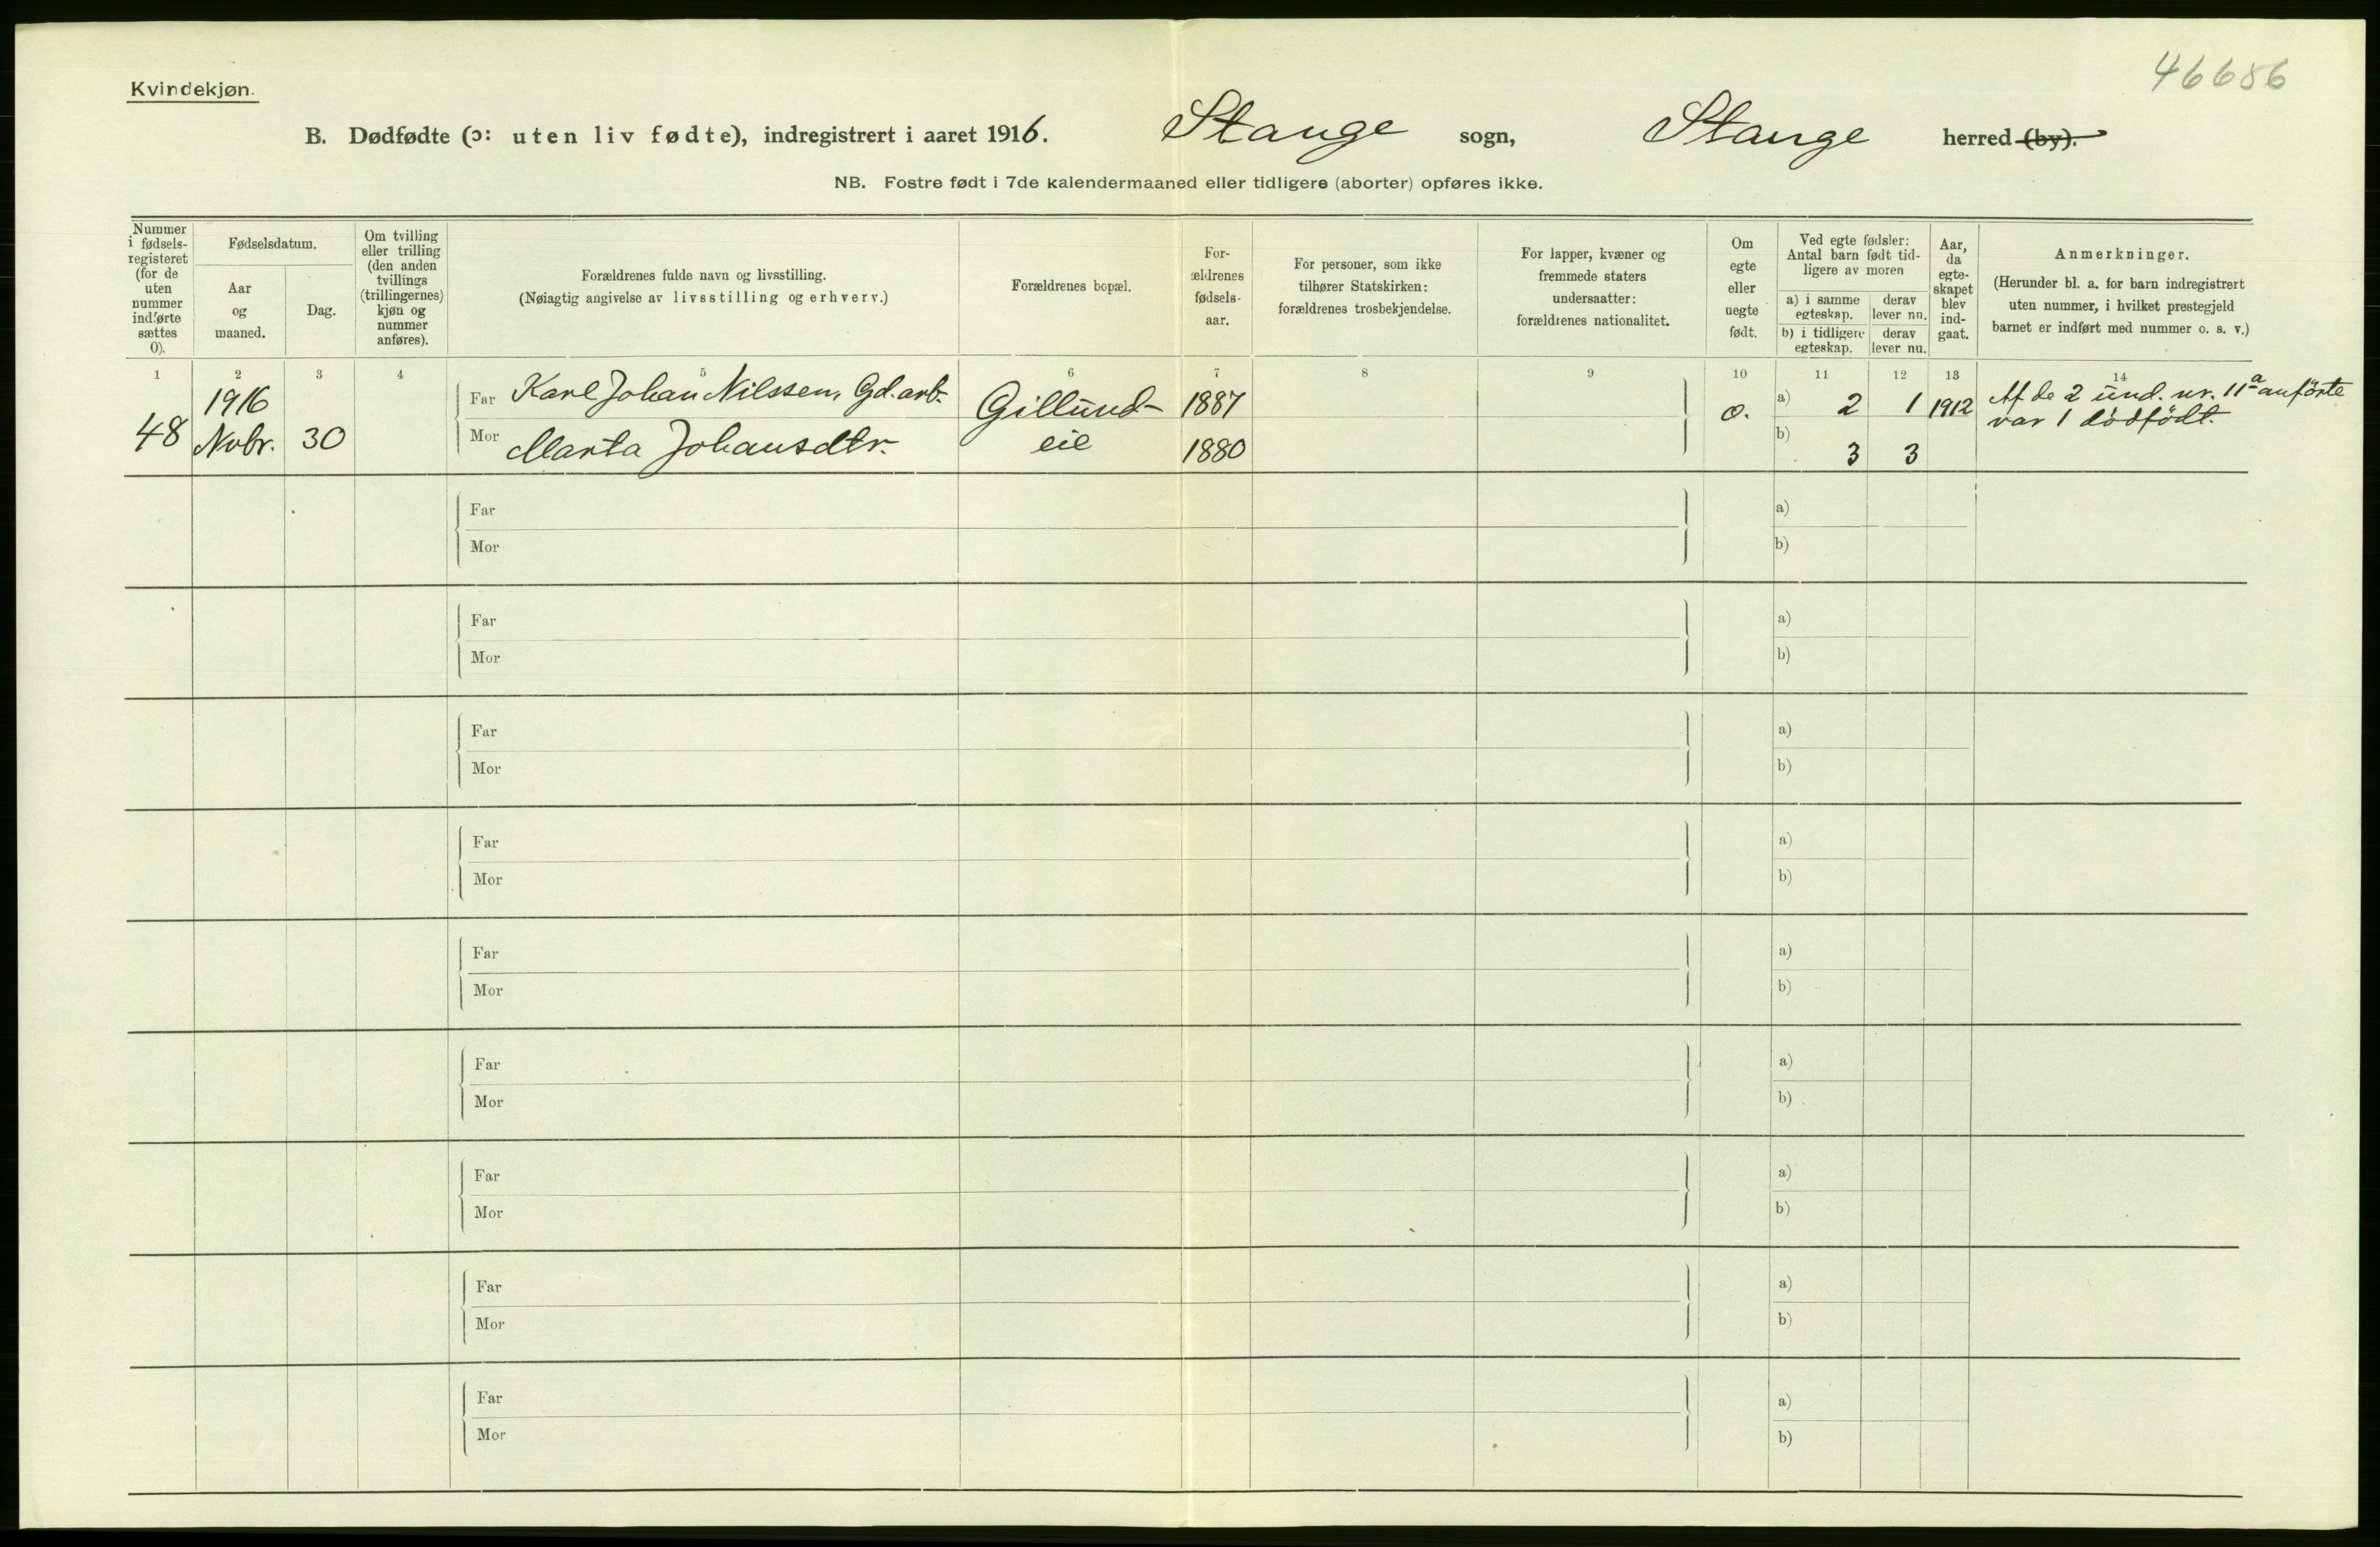 46686
Kvindekjøn.
B. Dødfødte (ɔ: uten liv fødte), indregistrert i aaret 1916. Stange sogn, Stange herred (by).
NB. Fostre født i 7de kalendermaaned eller tidligere (aborter) opføres ikke.
Nummer i fødsels-registeret (for de uten nummer indførte sættes 0).
Fødselsdatum.
Aar og maaned.
Dag.
Om tvilling eller trilling (den anden tvillings (trillingernes) kjøn og nummer anføres).
Forældrenes fulde navn og livsstilling.
(Nøiagtig angivelse av livsstilling og erhverv.)
Forældrenes bopæl.
For-ældrenes fødsels-aar.
For personer, som ikke tilhører Statskirken: forældrenes trosbekjendelse.
For lapper, kvæner og fremmede staters undersaatter: forældrenes nationalitet.
Om egte eller uegte født.
Ved egte fødsler: Antal barn født tid-ligere av moren
a) i samme egteskap.
derav lever nu.
b) i tidligere egteskap.
derav lever nu.
Aar, da egte-skapet blev ind-gaat.
Anmerkninger.
(Herunder bl. a. for barn indregistrert uten nummer, i hvilket prestegjeld barnet er indført med nummer o. s. v.)
1 2 3 4 5 6 7 8 9 10 11 12 13 14
48 1916 Nvbr. 30
Far Karl Johan Nilssen, Gd. arb. Gillund- 1887 o. a) 2 1 1912 Af de 2 und. nr. 11a anførte
var 1 dødfødt.
Mor Marta Johansdtr. eie 1880 b) 3 3
Far a)
Mor b)
Far a)
Mor b)
Far a)
Mor b)
Far a)
Mor b)
Far a)
Mor b)
Far a)
Mor b)
Far a)
Mor b)
Far a)
Mor b)
Far a)
Mor b)